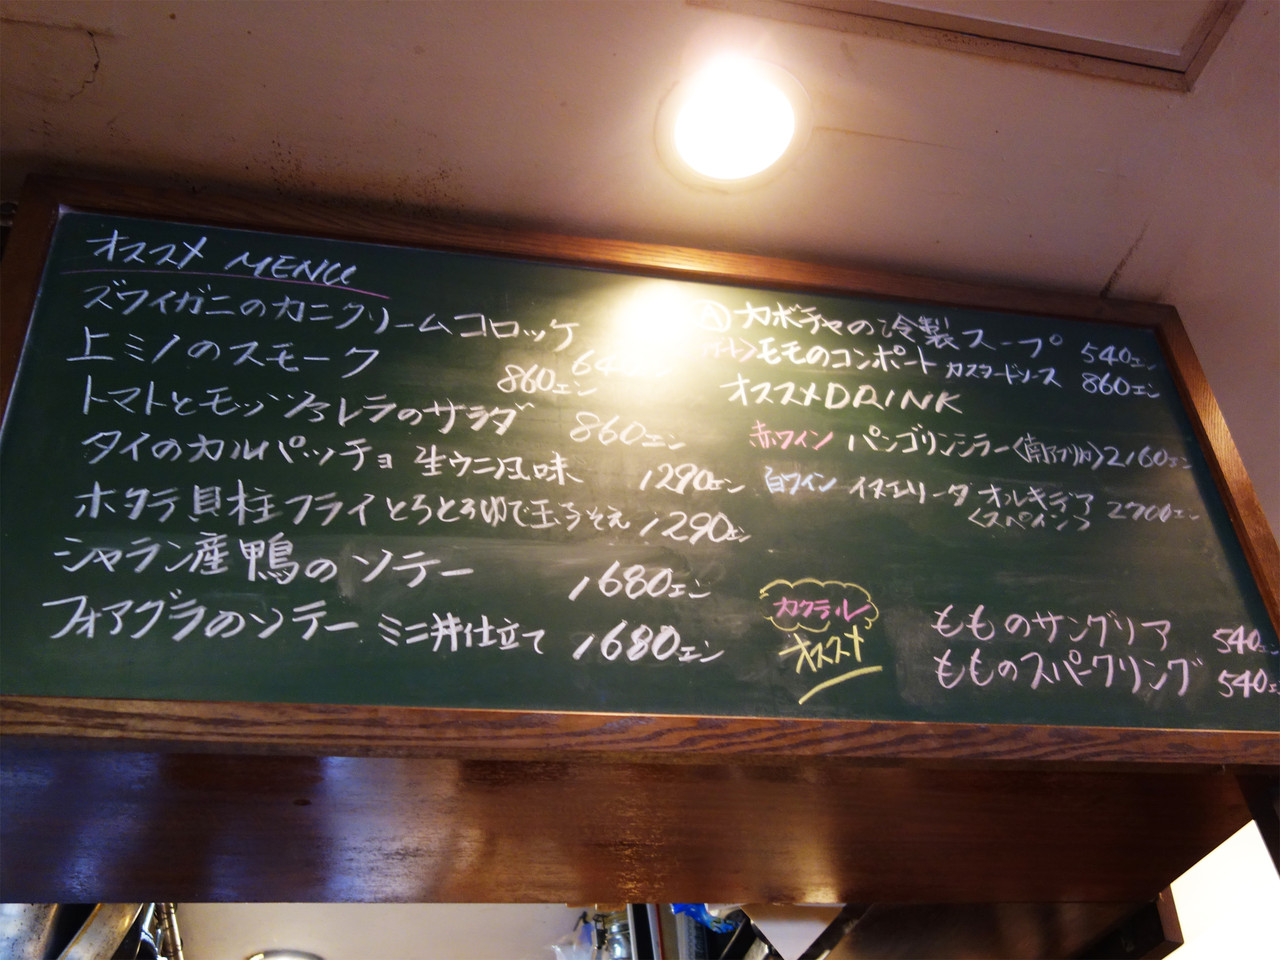 オススメ MENU
ズワイガニのカニクリームコロッケ
上ミノのスモーク 860エン
トマトとモッツァレラのサラダ 860エン
タイのカルパッチョ 生ウニ風味 1290エン
ホタテ貝柱フライ とろとろゆで玉子そえ 1290エン
シャラン産鴨のソテー 1680エン
フォアグラのソテー ミニ丼仕立て 1680エン
カボチャの冷製スープ 540エン
モモのコンポート カスタードソース 860エン
オススメDRINK
赤ワイン パンゴリンシラー〈南アフリカ〉2160エン
白ワイン イヌエリータ オルキデア 2700エン
〈スペイン〉
カクテル
オススメ
もものサングリア 540エン
もものスパークリング 540エ